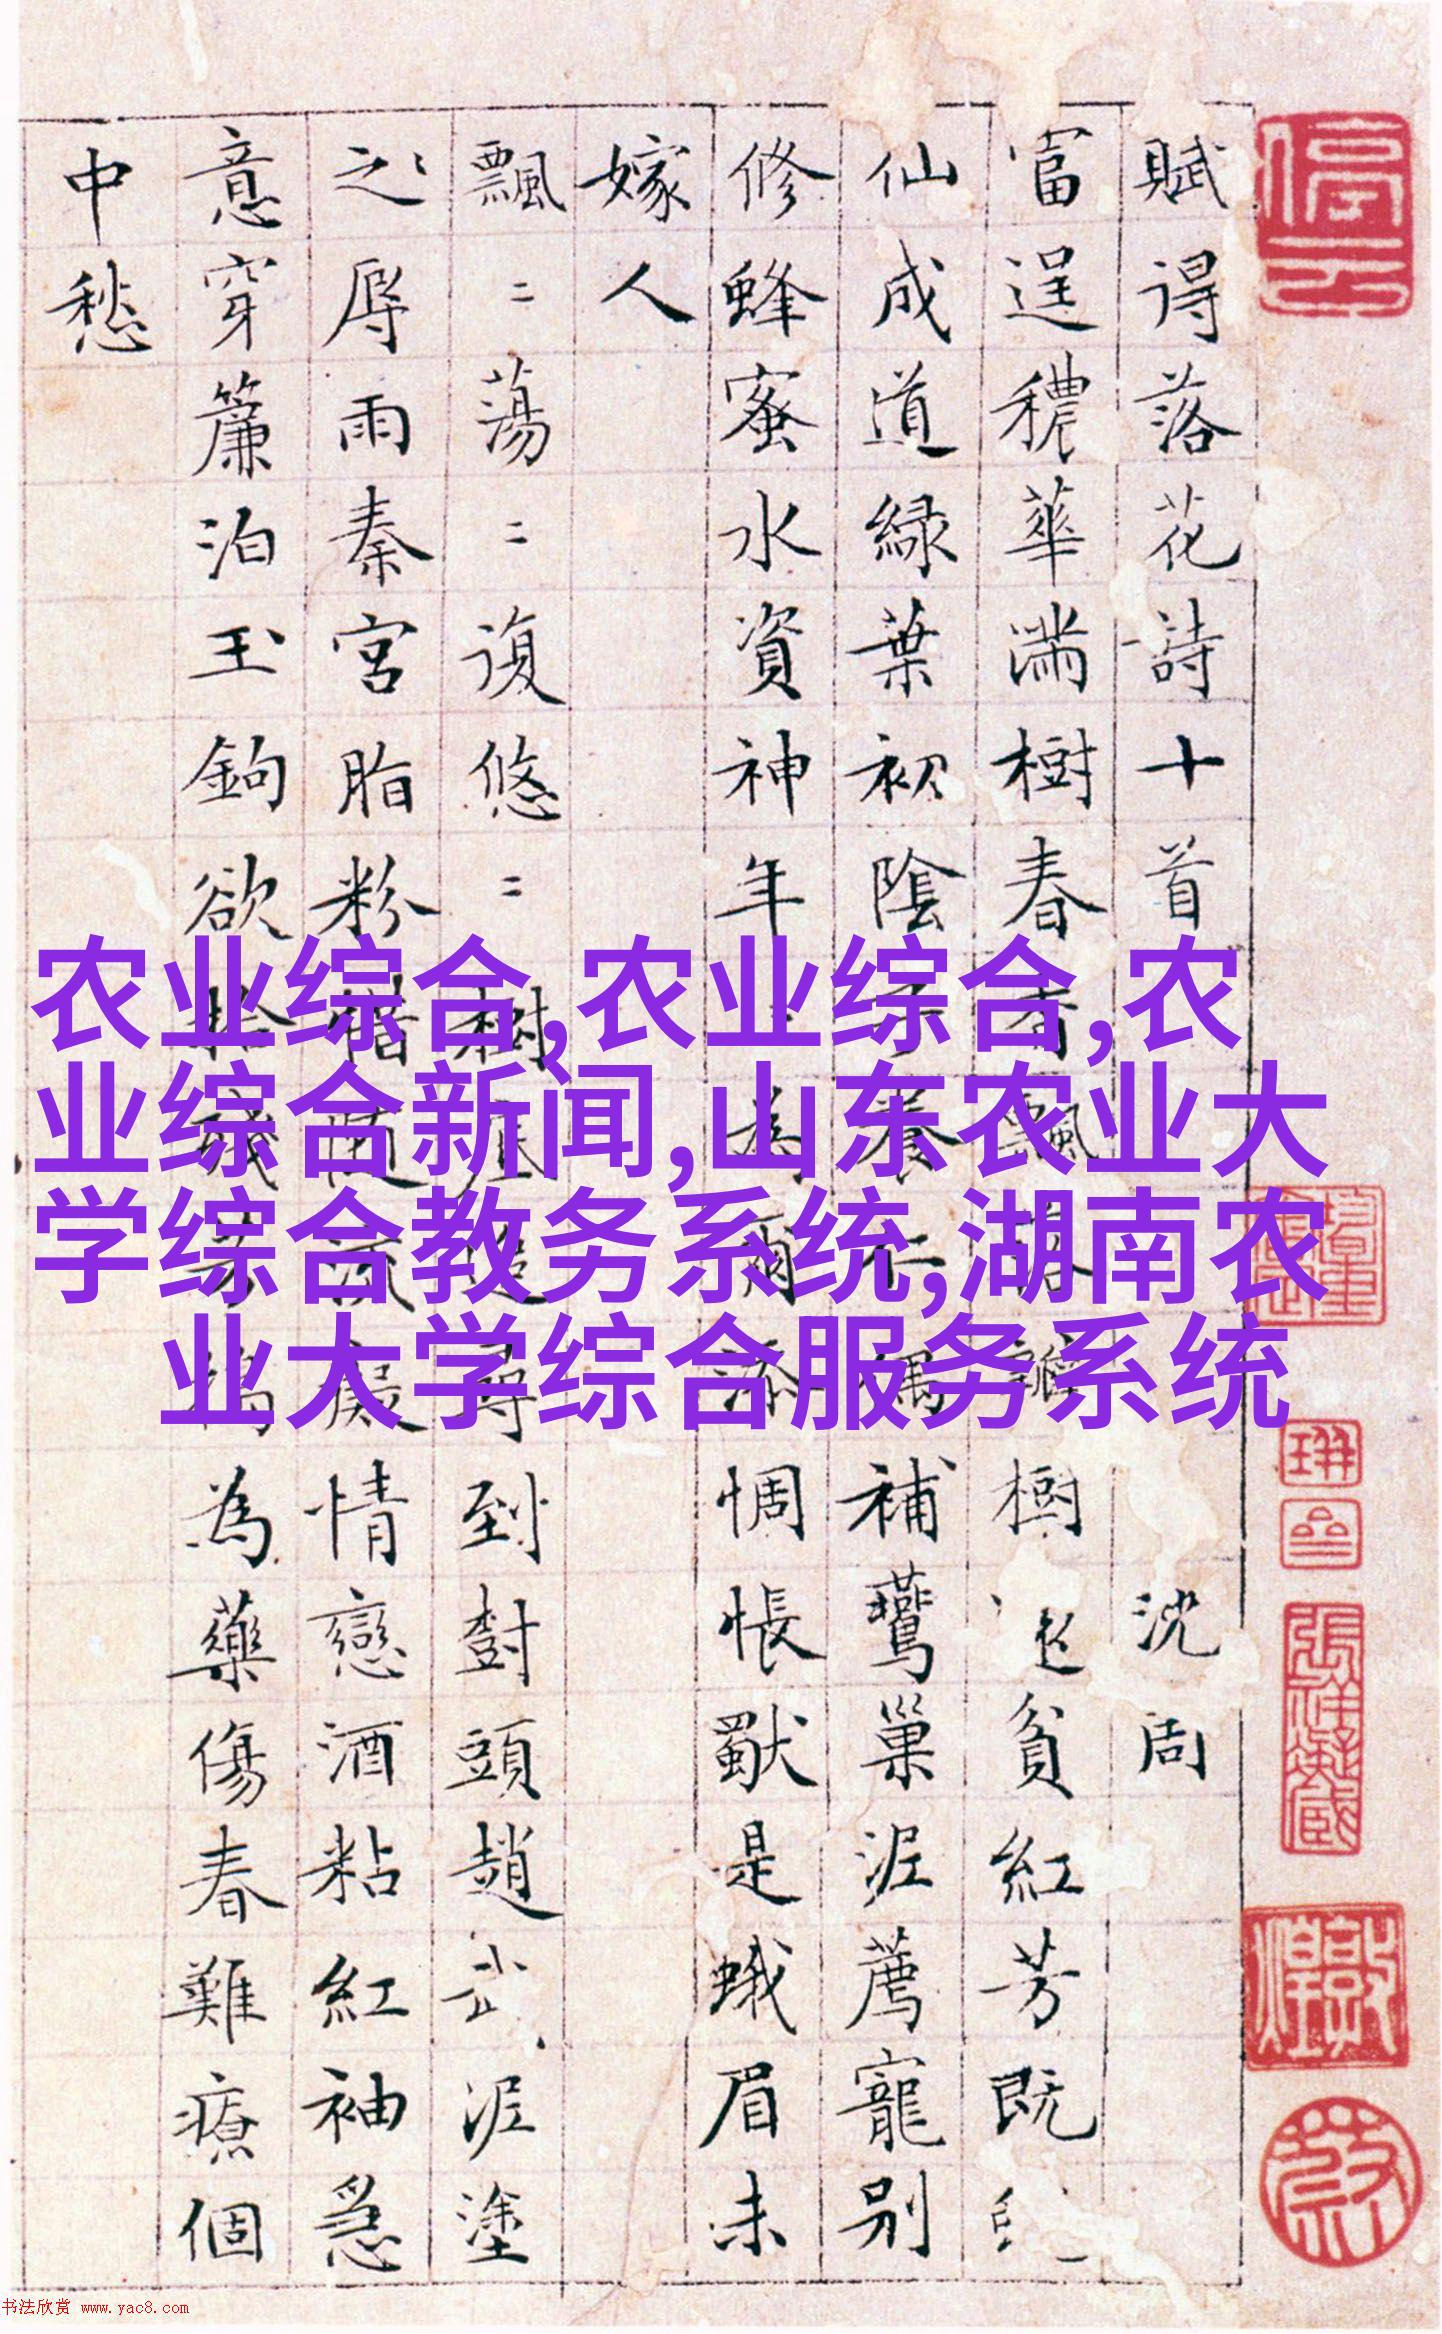 賦得落花詩十首 沈周
富逞穠華滿樹春香飄落瓣樹還貧紅芳既
仙成道綠葉初陰子養仁偶補鶯巢泥薦寵別
修蜂蜜水資神年〻為爾添惆悵獸是蛾眉未
嫁人
飄〻蕩〻復悠〻樹底追尋到樹頭趙武泥塗
之辱雨秦宮脂粉惜隨流癡情戀酒粘紅袖急
意穿簾泊玉鉤欲拾殘芳搗為藥傷春難療個
中愁
农业综合,农业综合,农
业综合新闻,山东农业大
学综合教务系统,湖南农
业大学综合服务系统
书法欣赏 www.yac8.com